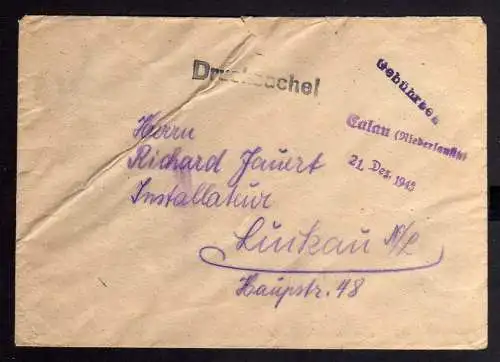 Drucksache!
Gebühr
Calau (Niederlausitz)
21. Dez. 1945
Herrn
Richard Jauert
Installateur
Luckau N/L
Haupstr. 48